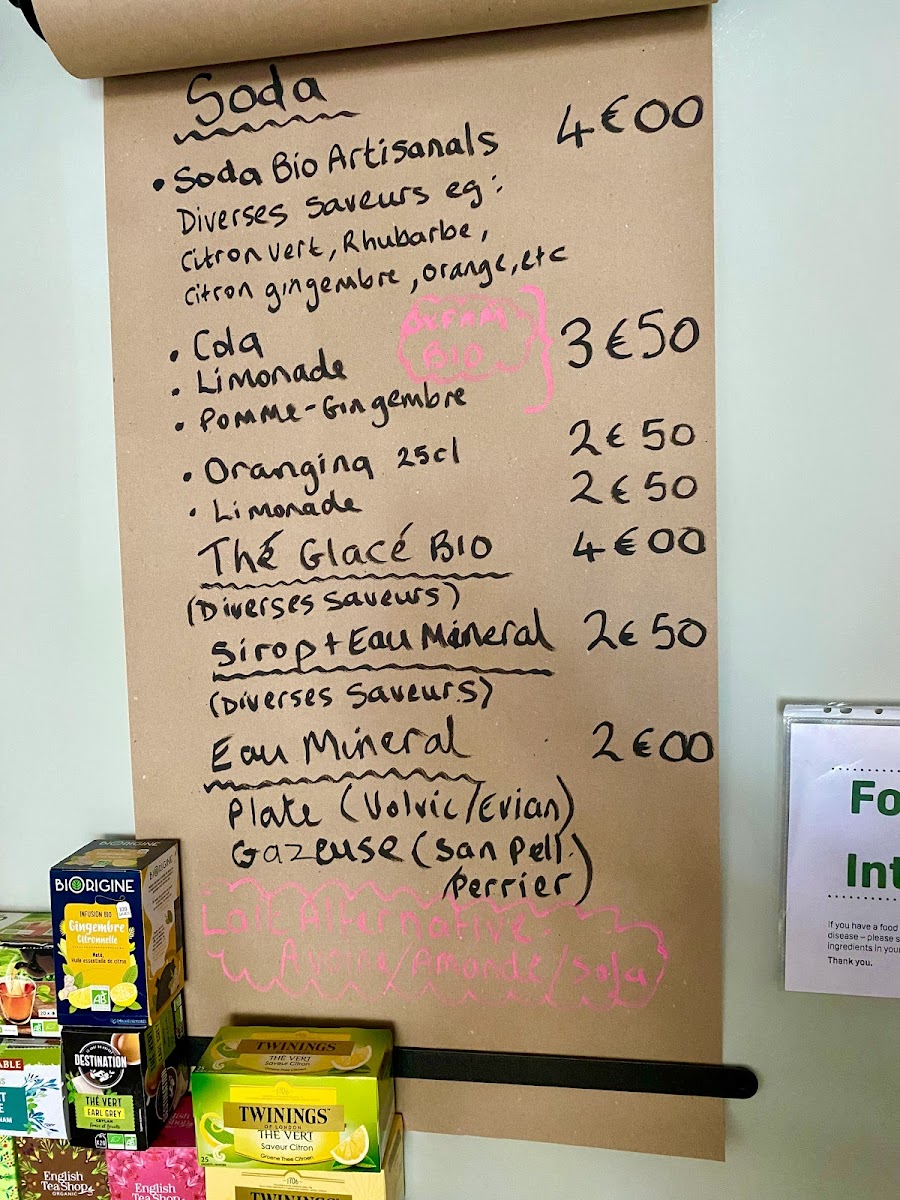 Soda
• Soda Bio Artisanals 4€00
Diverses saveurs eg:
Citron vert, Rhubarbe,
Citron gingembre, orange, etc
• Cola
• Limonade
• Pomme-Gingembre
BIO
3€50
• Orangina 25cl 2€50
• Limonade 2€50
Thé Glacé Bio 4€00
(Diverses saveurs)
Sirop + Eau Mineral 2€50
(Diverses saveurs)
Eau Mineral 2€00
Plate (Volvic/Evian)
Gazeuse (San Pell.
/Perrier)
Lait Alternative:
/Amande/Soja
Fo
Int
If you have a food
disease – please s
ingredients in your
Thank you.
BIORIGINE
INFUSION BIO
Gingembre
Citronnelle
AB
DESTINATION
THÉ VERT
EARL GREY
CEYLAN
TWININGS
THÉ VERT
Saveur Citron
TWININGS
OF LONDON
THÉ VERT
Saveur Citron
Groene Thee Citroen
25
English
Tea Shop
ORGANIC
English
Tea Shop
1706
TWININGS